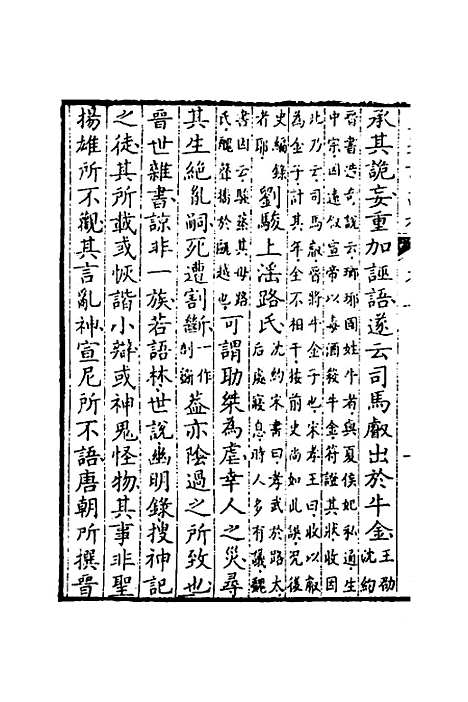 承其詭妄重加誣語遂云司馬叡出於牛金王劭
沈約
晉書造奇說云瑯琊國姓牛者與夏侯妃私通生
中宗因遠叙宣帝以毒酒殺牛金符證其狀收因
此乃云司馬叡晉將牛金子也宋孝王曰收以叡
為金子計其年全不相干按前史尚如此誤況後
史編錄
者耶
劉駿上淫路氏
沈約宋書曰孝武於路太
后處寢息時人多有議魏
書因云駿蒸其母路
氏醜聲播於甌越也
可謂助桀為虐幸人之災尋
其生絶胤嗣死遭割斷一作
蓋亦陰過之所致也
晉世雜書諒非一族若語林世說幽明錄搜神記
之徒其所載或恢諧小辯或神鬼怪物其事非聖
揚雄所不觀其言亂神宣尼所不語唐朝所撰晉